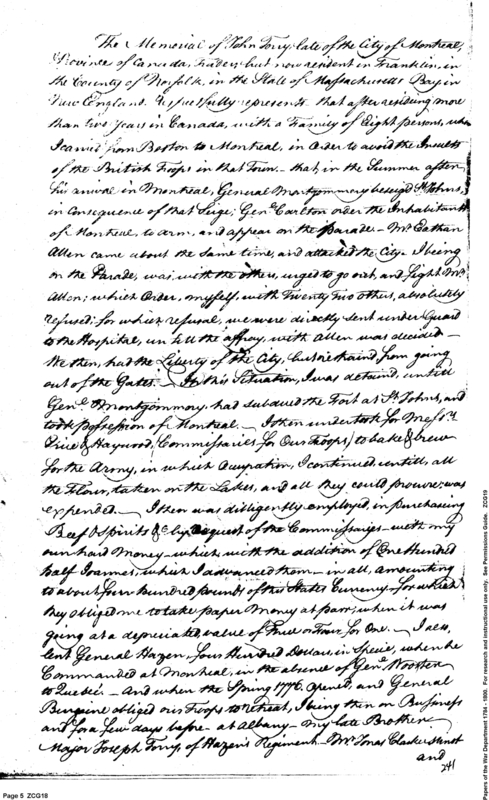 The Memorial of John Torry, late of the City of Montreal,
Province of Canada, Trader, but now resident in Franklin, in
the County of Norfolk, in the State of Massachusetts Bay in
New England. Respectfully represents that after residing more
than two Years in Canada, with a Family of Eight persons, when
I came from Boston to Montreal, in Order to avoid the Insults
of the British Troops in that Town — that, in the Summer after
his arrival in Montreal, General Montgommory besieged St. Johns,
in Consequence of that Seige; Genl. Carlton order the Inhabitants
of Montreal, to arm, and appear on the Parade — Mr. Eathan
Allen came about the same time, and attacked the City. I being
on the Parade, was, with the others, urged to go out, and fight Mr.
Allen; which Order, myself, with Twenty Two others, absolutely
refused; for which refusal, we were directly sent under Guard
to the Hospital, untill the affray, with Allen was decided —
We then, had the Liberty of the City, but restraind, from going
out of the Gates. — In this Situation, I was detaind, untill
Genl. Montgommory, had subdued the Fort at St. Johns, and
took possession of Montreal. — I then undertook for Messrs.
Price & Haywood, (Commissaries for Our Troops) to bake & brew
for the Army, in which Occupation, I continued, untill, all
the Flour, taken on the Lakes, and all they could procure, was
expended. — I then was dilligently employed, in purchasing
Beef & Spirits &c by request of the Commissaries — with my
own hard Money — which, with the addition of One Hundred
half Joannes, which I advanced them — in all, amounting
to about four hundred pounds of this States Currency — for which
they obliged me to take paper Money at parr, when it was
going at a depreciated value of Three or Four for One. — I also,
lent General Hazen, four Hundred Dollars, in Specie, when he
Commanded at Montreal, in the absence of Genl. Wooster
to Quebec. — And when the Spring 1776 opened, and General
Burgine obliged our Troops to retreat, I being then on Business
and for a few days before — at Albany — My late Brother
Major Joseph Torry, of Hazen's Regiment — Mr. Jonas Clarke Minot
and
Page 5 ZCG18
Papers of the War Department 1784 - 1800. For research and instructional use only. See Permissions Guide. ZCG19